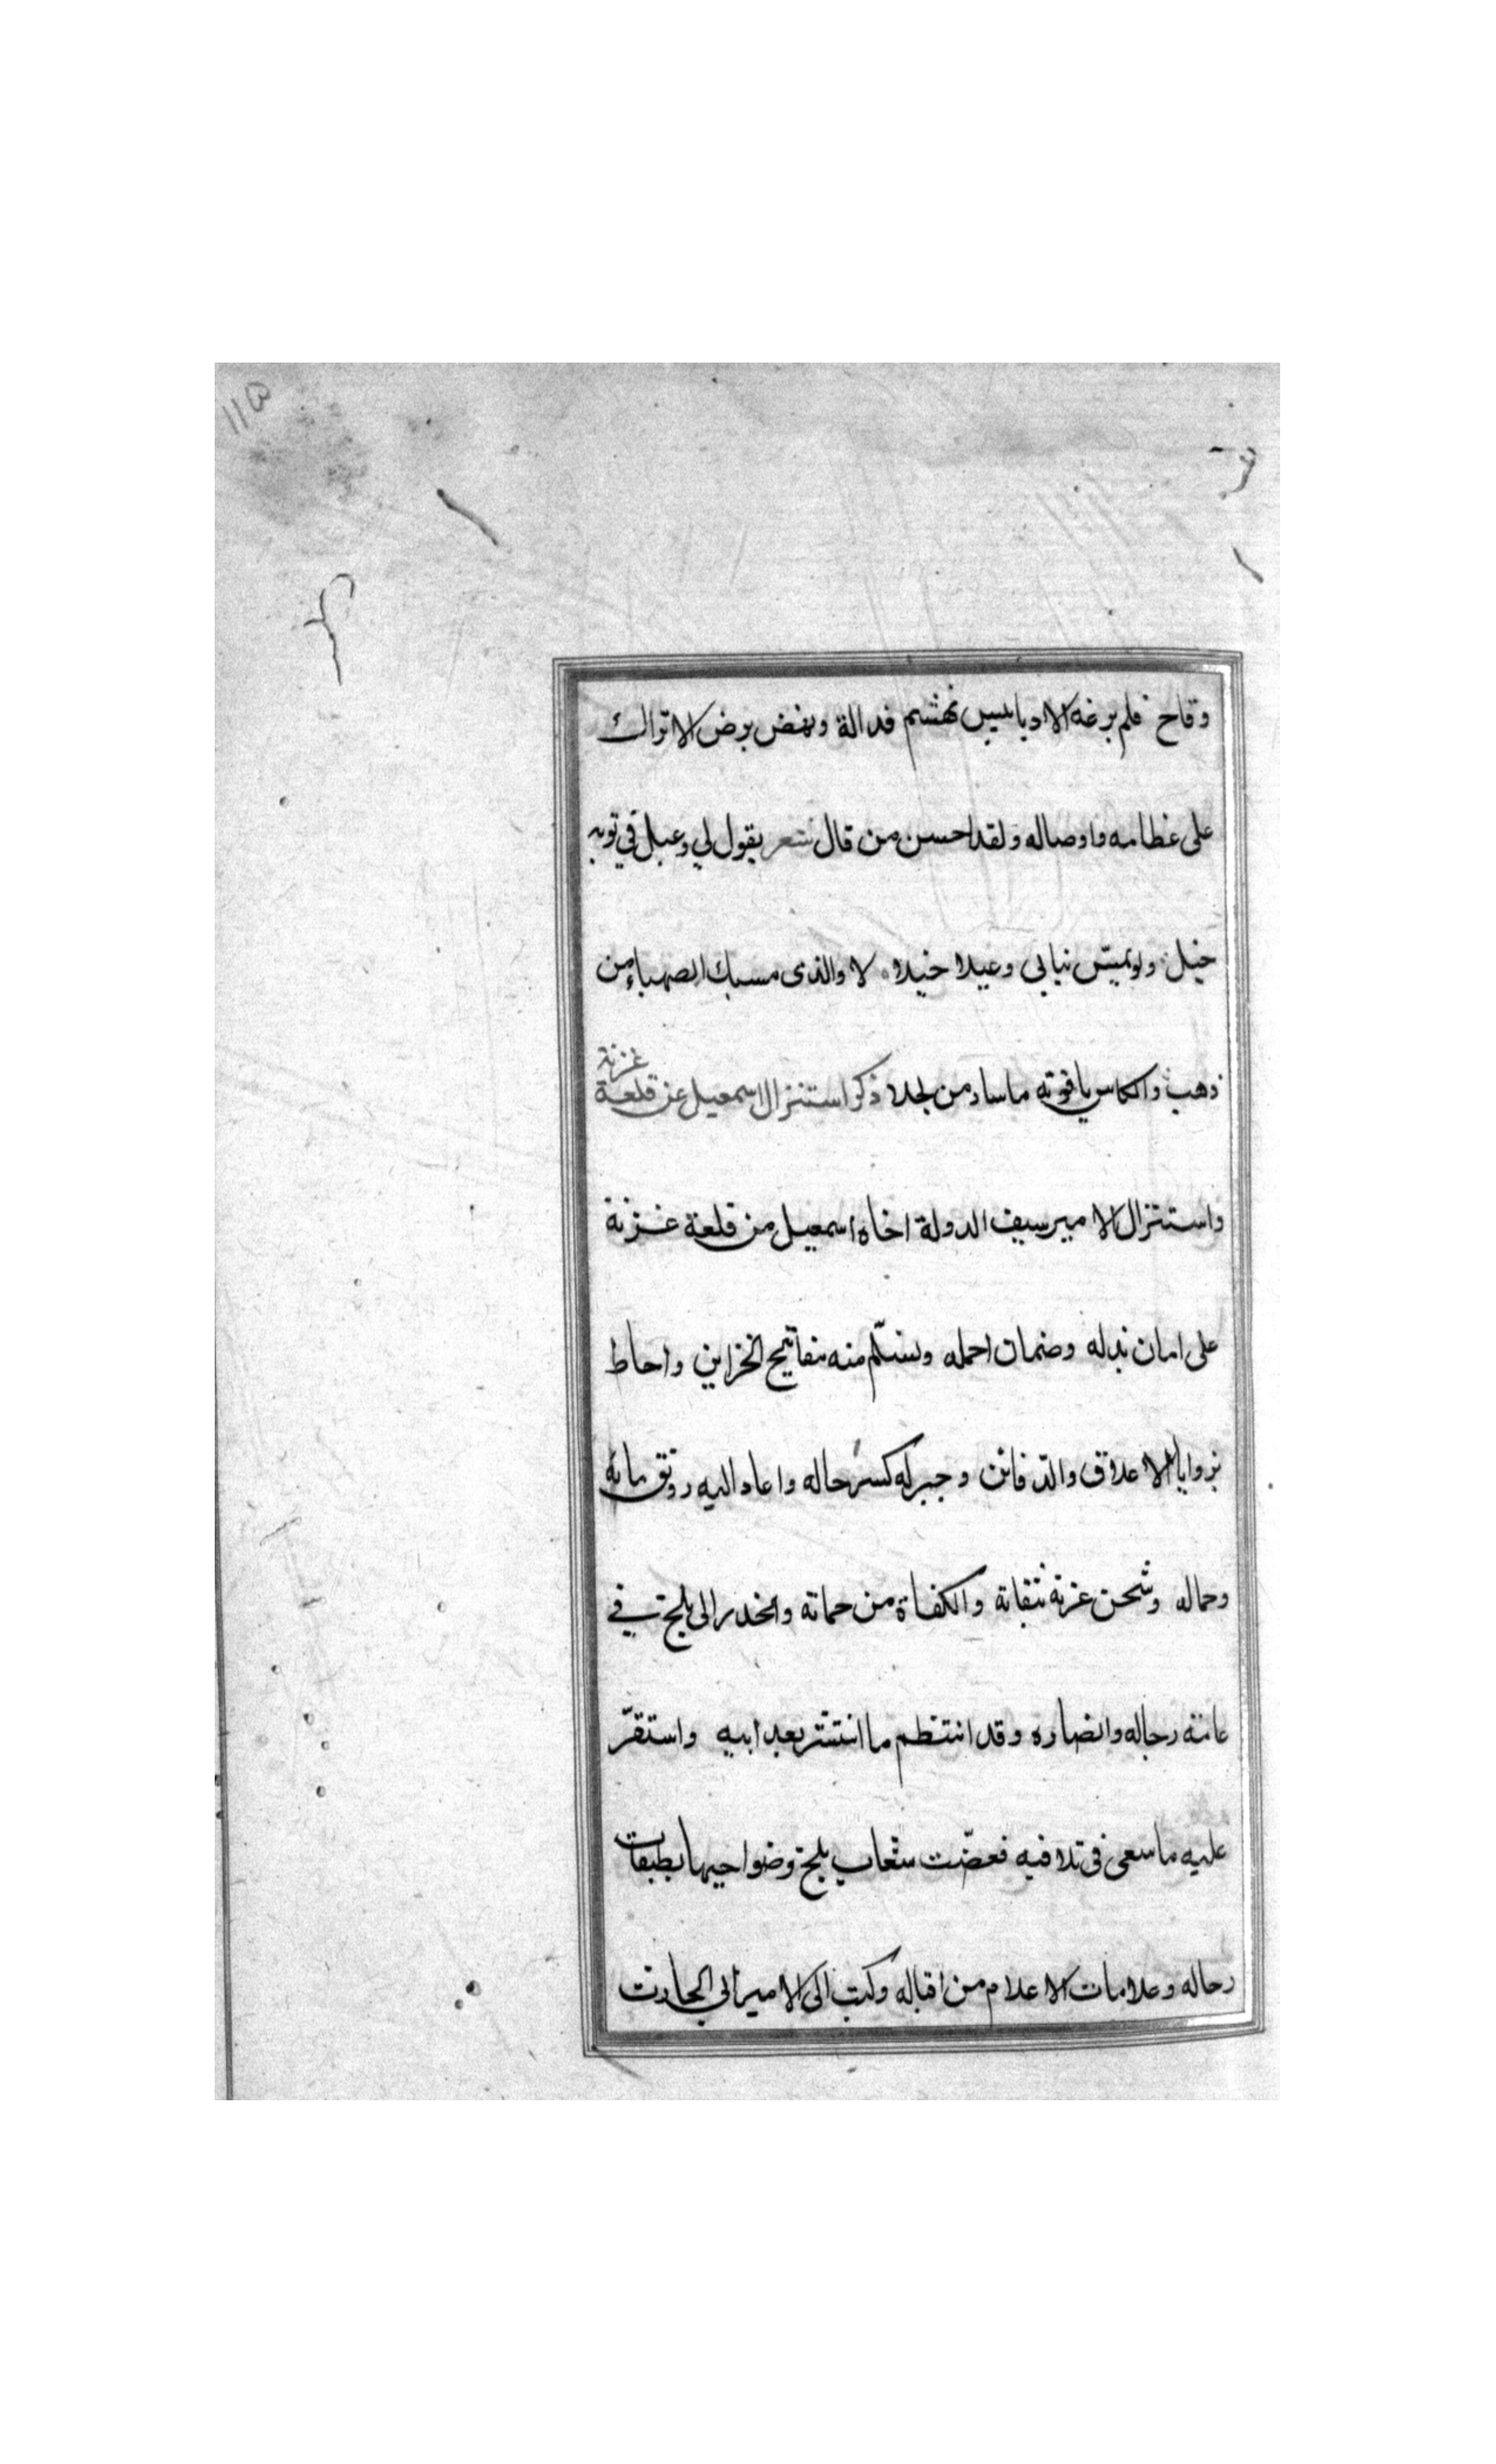 ١١٥
وقاح فلم برعه الا دبابيس تهشم قداله وتفض برض الاتراك
على عظامه واوصاله ولقد احسن من قال شعر يقول لي وعبل في توبه
خيل ولو تميس نيابي وعيلا خيلا لا والذى مسبك الصهباء من
ذهب والكاس ياقوته ماساد من لجلا ذكر استنزال اسمعيل عن قلعة
غزنة
واستنزال الامير سيف الدولة اخاه اسمعيل من قلعة غزنة
على امان بذله وضمان احمله وتسلّم منه مفاتيح الخزاين واحاط
بزوايا الاعلاق والدّفائن وجبر له كسر حاله واعاد اليه رونق مائه
وحماله وشحن غزنه بثقاته والكفاة من حماته وانحدر الى بلخ في
عامّة رجاله وانصاره وقد انتظم ما انتشر بعد ابيه واستقرّ
عليه ما سعى في تلافيه فغصّت شعاب بلخ وضواحيها بطبقات
رحاله وعلامات الاعلام من اقباله وكتب الى الامير ابي الحارث